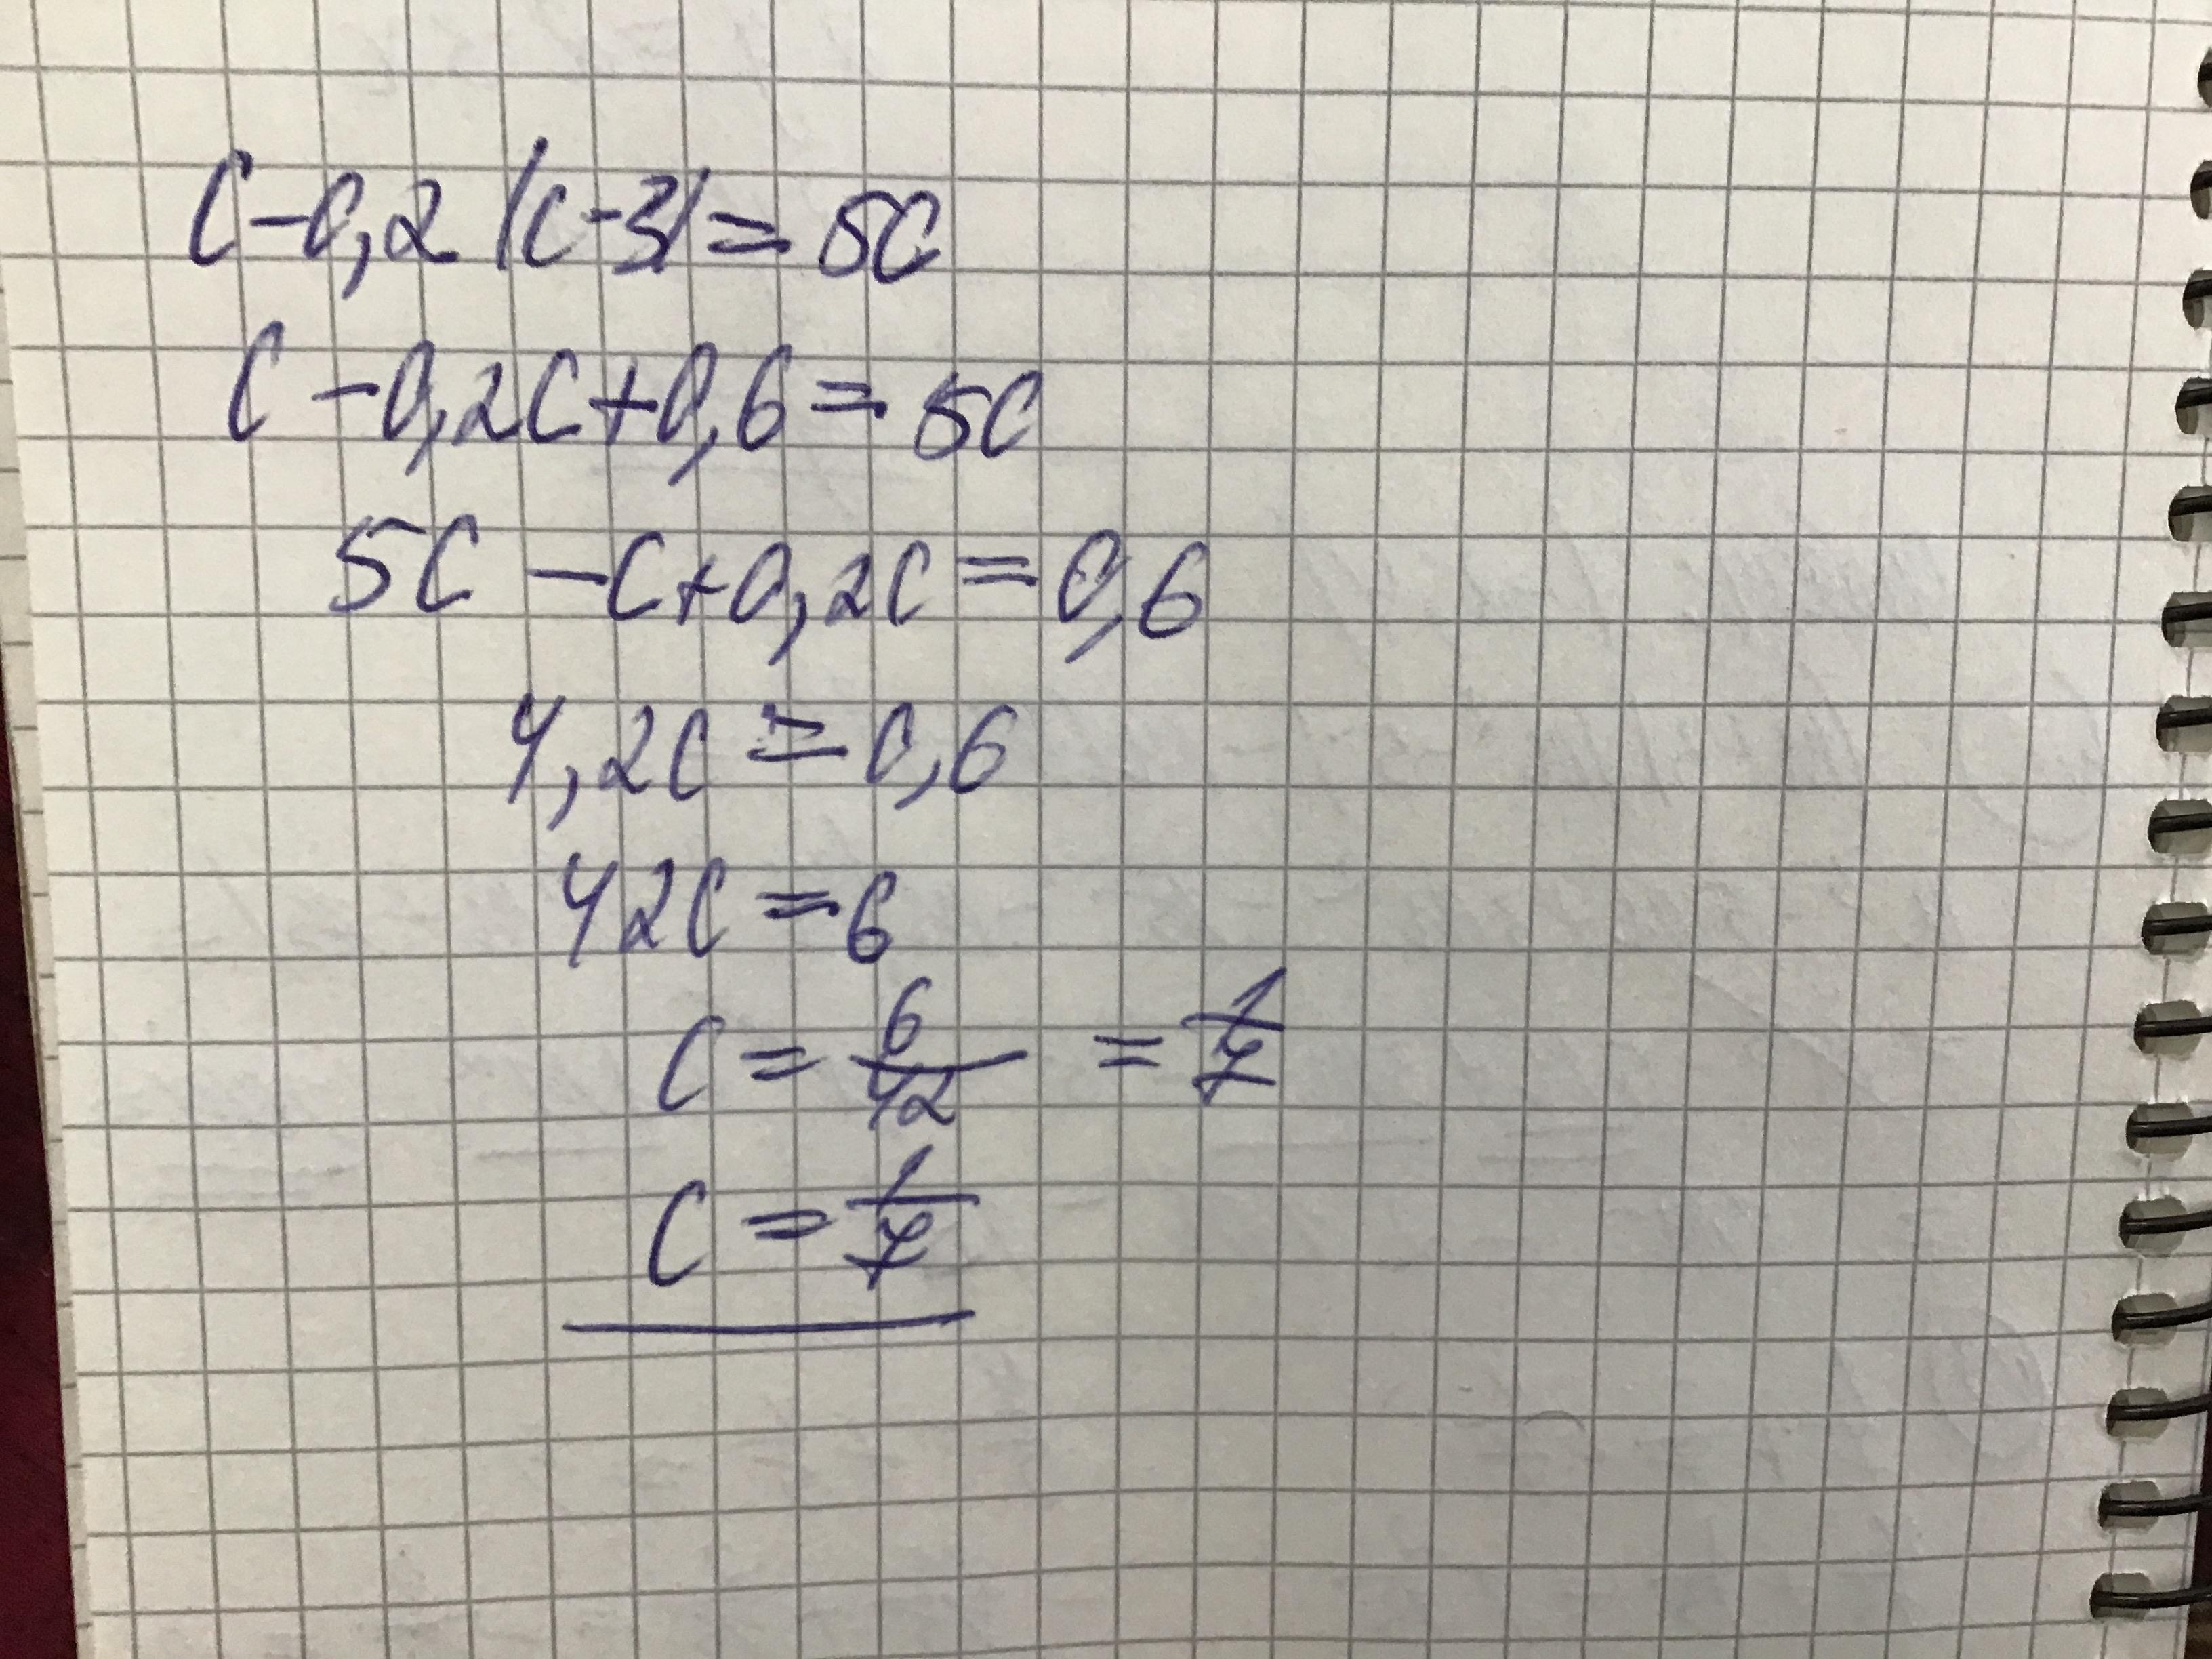 C-0,2(c-3)=5C
C-0,2C+0,6=5C
5C-C+0,2C=0,6
4,2C=0,6
42C=6
C=6/42=1/7
C=1/7